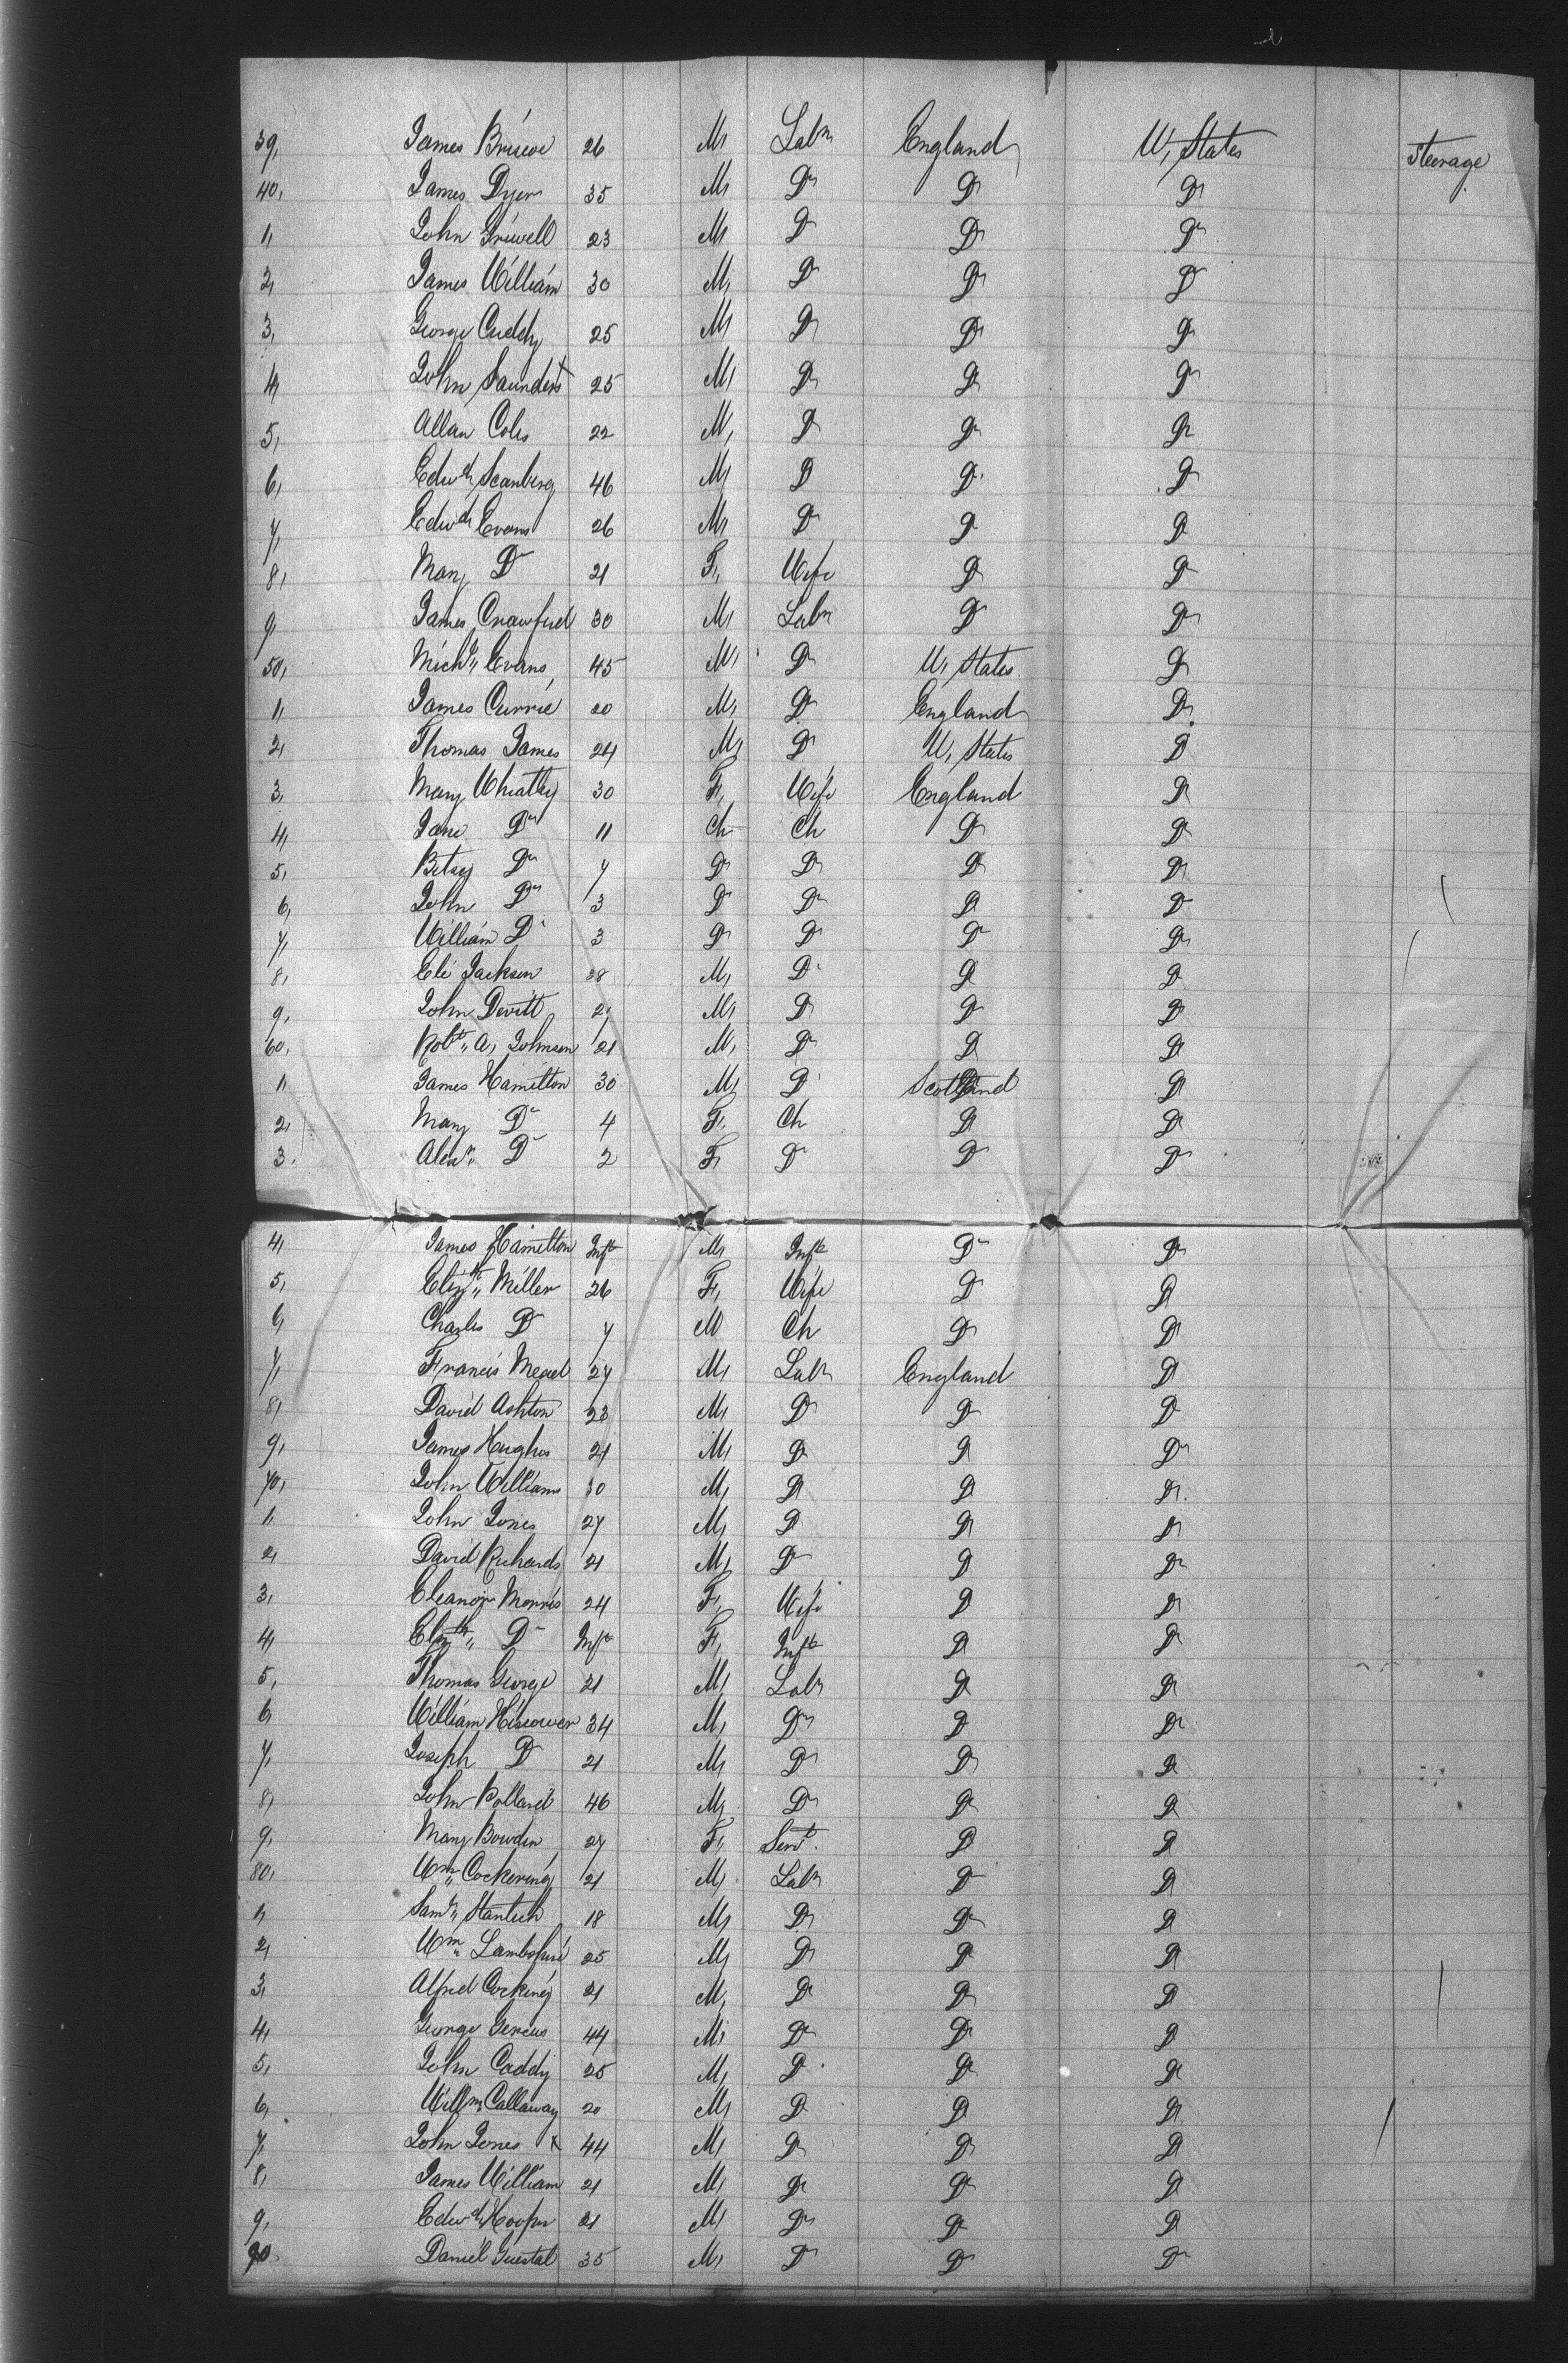 39, James Briscoe 26 M, Labr England U, States Steerage
40, James Dyer 35 M, Do Do Do
1, John Griwell 23 M Do Do Do
2, James William 30 M, Do Do Do
3, George Cuddy 25 M Do Do Do
4, John Saunders 25 M, Do Do Do
5, Allan Coles 22 M, Do Do Do
6, Edwd Scanberg 46 M, Do Do Do
7, Edwd Evans 26 M, Do Do Do
8, Mary Do 21 F, Wife Do Do
9, James Crawfud 30 M, Labr Do Do
50, Michl Evans, 45 M, Do U, States Do
1, James Currie 20 M, Do England Do
2, Thomas James 24 M, Do U, States Do
3, Mary Wheatly 30 F, Wife England Do
4, Jane Do 11 Ch Ch Do Do
5, Betsy Do 7 Do Do Do Do
6, John Do 3 Do Do Do Do
7, William Do 3 Do Do Do Do
8, Eli Jackson 38 M, Do Do Do
9, John Devitt 27 M, Do Do Do
60, Robt A, Johnson 21 M, Do Do Do
1, James Hamilton 30 M, Do Scotland Do
2, Mary Do 4 F, Ch Do Do
3. Alexr Do 2 F, Do Do Do
4, James Hamilton Inft M, Inft Do Do
5, Elizth Miller 26 F, Wife Do Do
6, Charles Do 7 M Ch Do Do
7, Francis Mead 27 M, Labr England Do
8, David Ashton 23 M, Do Do Do
9, James Hughes 21 M, Do Do Do
70, John Williams 30 M, Do Do Do
1, John Jones 27 M, Do Do Do
2, David Richards 21 M, Do Do Do
3, Eleanor Morris 24 F, Wife Do Do
4, Elizth Do Inft F, Inft Do Do
5, Thomas George 21 M, Labr Do Do
6, William Hiscower 34 M, Do Do Do
7, Joseph Do 21 M, Do Do Do
8, John Pollard 46 M, Do Do Do
9, Mary Bowden 27 F, Servt. Do Do
80, Wm Cockering 21 M, Labr Do Do
1, Saml 18 M, Do Do Do
2, Wm 25 M, Do Do Do
3, Alfred Cocking 21 M, Do Do Do
4, George 44 M, Do Do Do
5, John Caddy 25 M, Do Do Do
6, Willm Callaway 20 M, Do Do Do
7, John Jones x 44 M, Do Do Do
8, James William 21 M, Do Do Do
9, Edwd Hooper 21 M, Do Do Do
90. Daniel 35 M, Do Do Do